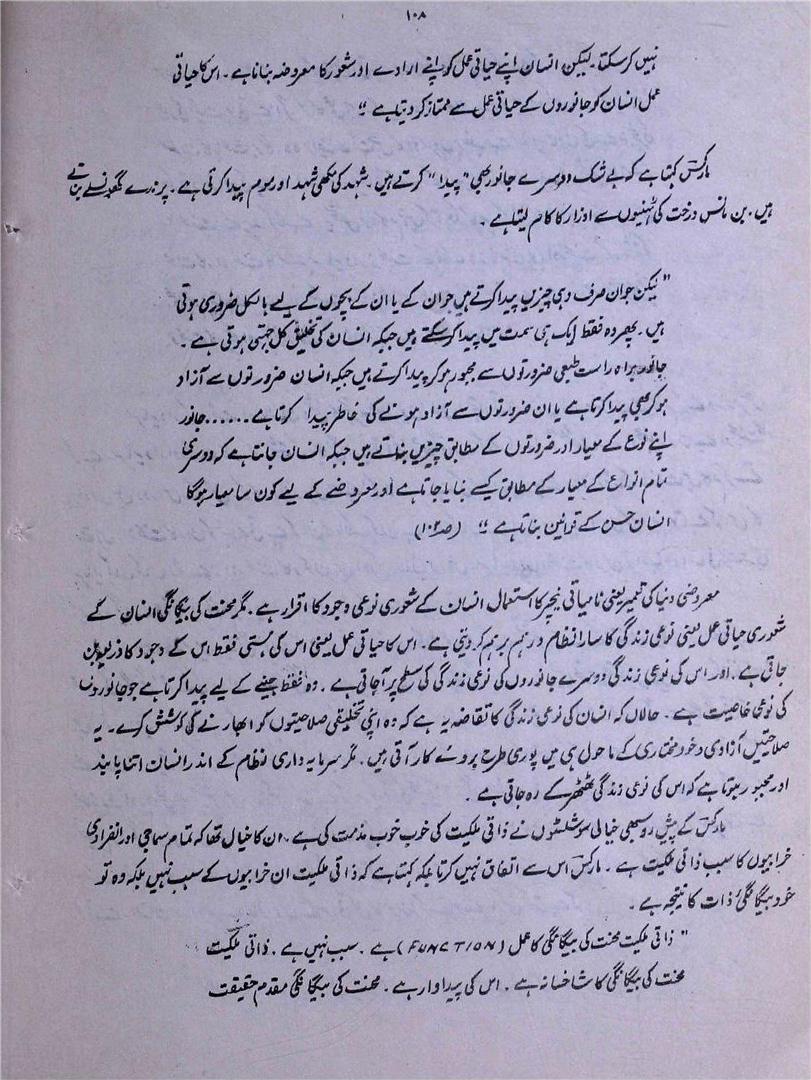 ۱۰۸
نہیں کر سکتا۔ لیکن انسان اپنے حیاتی عمل کو اپنے ارادے اور شعور کا معروضہ بناتا ہے۔ اس کا حیاتی
عمل انسان کو جانوروں کے حیاتی عمل سے ممتاز کر دیتا ہے "
مارکس کہتا ہے کہ بے شک دوسرے جانور بھی "پیدا" کرتے ہیں۔ شہد کی مکھی شہد اور موم پیدا کرتی ہے۔ پرندے گھونسلے بناتے
ہیں۔ بن مانس درخت کی ٹہنیوں سے اوزار کا کام لیتا ہے۔
" لیکن حیوان صرف وہی چیزیں پیدا کرتے ہیں جو ان کے یا ان کے بچوں کے لیے بالکل ضروری ہوتی
ہیں۔ پھر وہ فقط ایک ہی سمت میں پیدا کر سکتے ہیں جبکہ انسان کی تخلیق کل جہتی ہوتی ہے۔
جانور براہ راست طبعی ضرورتوں سے مجبور ہو کر پیدا کرتے ہیں جبکہ انسان ضرورتوں سے آزاد
ہو کر بھی پیدا کرتا ہے یا ان ضرورتوں سے آزاد ہونے کی خاطر پیدا کرتا ہے ...... جانور
اپنے نوع کے معیار اور ضرورتوں کے مطابق چیزیں بناتے ہیں جبکہ انسان جانتا ہے کہ دوسری
تمام انواع کے معیار کے مطابق کیسے بنایا جاتا ہے اور معروضے کے لیے کون سا معیار ہوگا
انسان حسن کے قوانین بناتا ہے " (ص ۱۰۲)
معروضی دنیا کی تعمیر یعنی نامیاتی نیچر کا استعمال انسان کے شعوری نوعی وجود کا اقرار ہے۔ مگر محنت کی بیگانگی انسان کے
شعوری حیاتی عمل یعنی نوعی زندگی کا سارا نظام درہم برہم کر دیتی ہے۔ اس کا حیاتی عمل یعنی اس کی ہستی فقط اس کے وجود کا ذریعہ بن
جاتی ہے۔ اور اس کی نوعی زندگی دوسرے جانوروں کی نوعی زندگی کی سطح پر آجاتی ہے۔ وہ فقط جینے کے لیے پیدا کرتا ہے جو جانوروں
کی نوعی خاصیت ہے۔ حالاں کہ انسان کی نوعی زندگی کا تقاضہ یہ ہے کہ وہ اپنی تخلیقی صلاحیتوں کو ابھارنے کی کوشش کرے۔ یہ
صلاحیتیں آزادی و خود مختاری کے ماحول ہی میں پوری طرح بروئے کار آتی ہیں۔ مگر سرمایہ داری نظام کے اندر انسان اتنا پابند
اور مجبور ہوتا ہے کہ اس کی نوعی زندگی ٹھٹھر کے رہ جاتی ہے۔
مارکس کے پیش رو سبھی خیالی سوشلسٹوں نے ذاتی ملکیت کی خوب خوب مذمت کی ہے۔ ان کا خیال تھا کہ تمام سماجی اور انفرادی
خرابیوں کا سبب ذاتی ملکیت ہے۔ مارکس اس سے اتفاق نہیں کرتا بلکہ کہتا ہے کہ ذاتی ملکیت ان خرابیوں کے سبب نہیں بلکہ وہ تو
خود بیگانگیٔ ذات کا نتیجہ ہے۔
" ذاتی ملکیت محنت کی بیگانگی کا عمل (FUNCTION) ہے۔ سبب نہیں ہے۔ ذاتی ملکیت
محنت کی بیگانگی کا شاخسانہ ہے۔ اس کی پیداوار ہے۔ محنت کی بیگانگی مقدم حقیقت